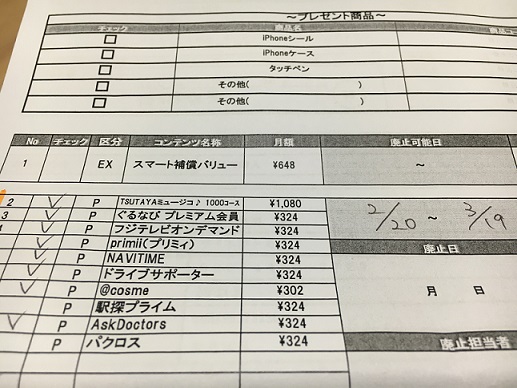 ～プレゼント商品～
チェック 商品名
iPhoneシール
iPhoneケース
タッチペン
その他( )
その他( )
No チェック 区分 コンテンツ名称 月額 廃止可能日
1 EX スマート補償バリュー ¥648 ～
2 P TSUTAYAミュージコ♪ 1000コース ¥1,080 2/20 ～ 3/19
3 P ぐるなび プレミアム会員 ¥324
4 P フジテレビオンデマンド ¥324
P primii(プリミィ) ¥324 廃止日
P NAVITIME ¥324
P ドライブサポーター ¥324 月 日
P @cosme ¥302
P 駅探プライム ¥324
P AskDoctors ¥324
P パクロス ¥324 廃止担当者